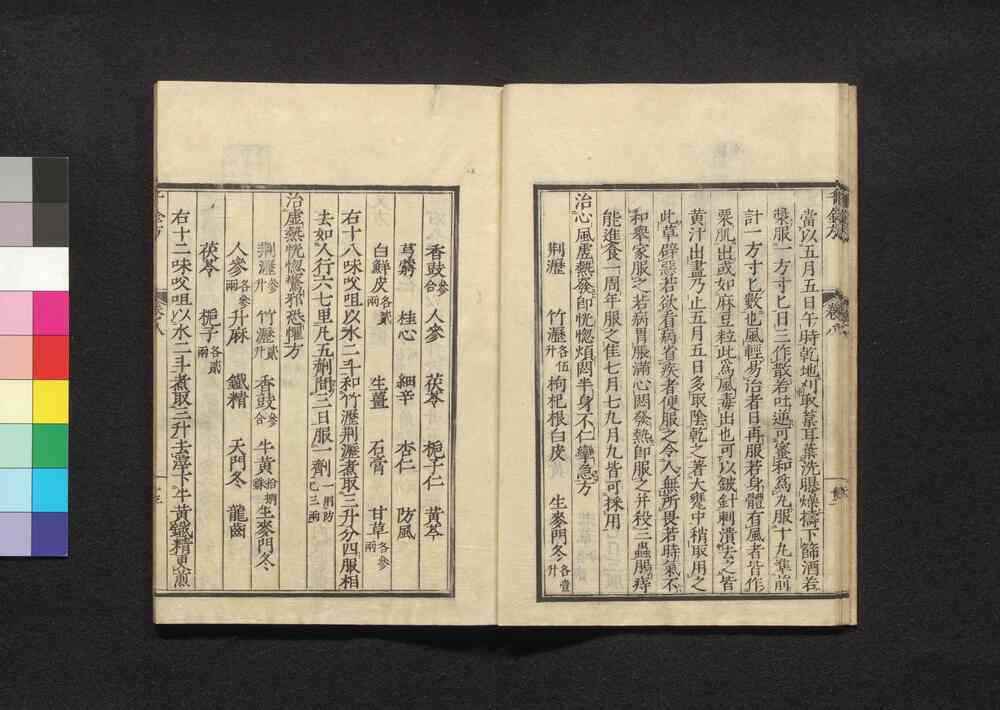 當以五月五日午時乾地刈取葈耳葉洗曝燥擣下篩酒若
漿服一方寸匕日三作散若吐逆可蜜和爲丸服十九隼前
計一方寸匕數也風輕易治者日再服若身體有風者皆作
粟肌出或如麻豆粒此爲風毒出也可以鈹針刺潰去之皆
黃汁出盡乃止五月五日多取陰乾之著大甕中稍取用之
此草辟惡若欲看病省疾者便服之令人無所畏若時氣不
和舉家服之若病胃脹滿心悶發熱卽服之并殺三蟲腸痔
能進食一周年服之佳七月七九月九皆可採用
治心風虛熱發卽恍惚煩悶半身不仁攣急方
荆瀝 竹瀝各伍升 枸杞根白皮 生麥門冬各壹升
香豉叁合 人參 茯苓 梔子仁 黃芩
芎藭 桂心 細辛 杏仁 防風
白鮮皮各貳兩 生薑 石膏 甘草各叁兩
右十八味㕮咀以水二斗和竹瀝荆瀝煮取三升分四服相
去如人行六七里凡五劑間三日服一劑一用防己三兩
治虛熱恍惚驚邪恐懼方
荆瀝叁升 竹瀝貳升 香豉叁合 牛黃拾捌銖 生麥門冬
人參各叁兩 升麻 鐵精 天門冬 龍齒
茯苓 梔子各貳兩
右十二味㕮咀以水二斗煮取三升去滓下牛黃鐵精更煎
千金方
卷八